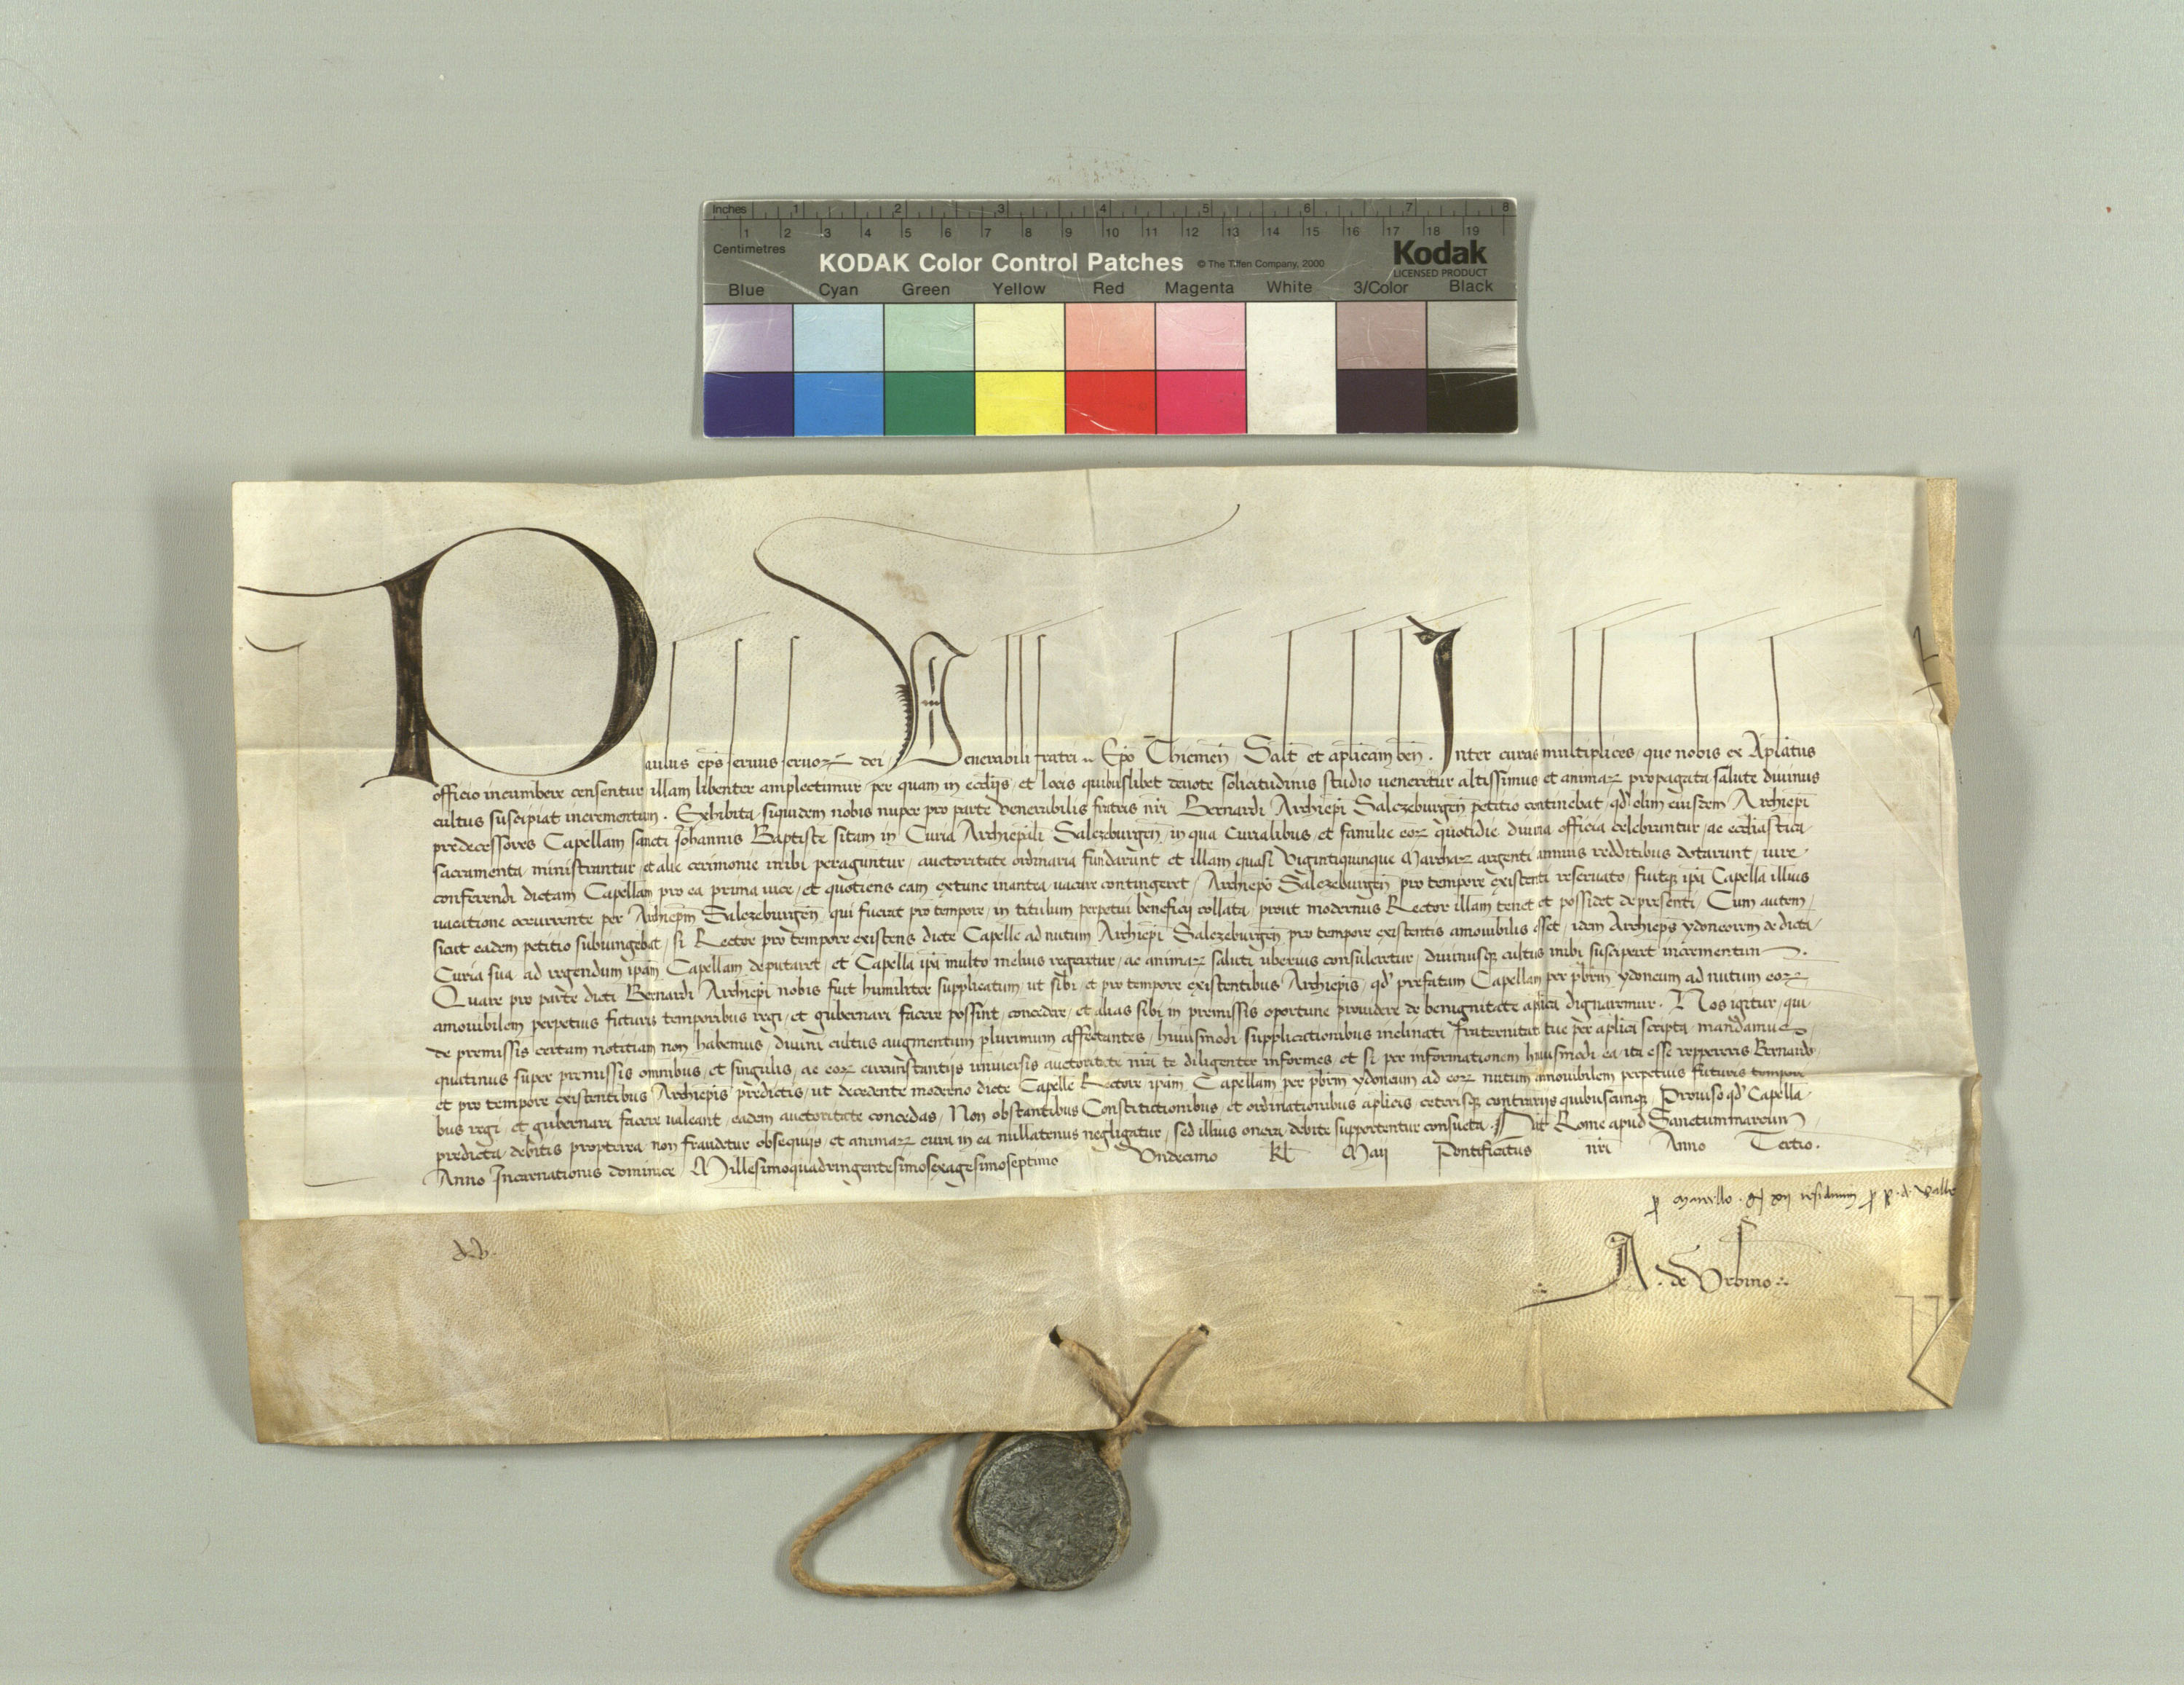 Inches 1 2 3 4 5 6 7 8
1 2 3 4 5 6 7 8 9 10 11 12 13 14 15 16 17 18 19
Centimetres
KODAK Color Control Patches © The Tiffen Company, 2000 Kodak
LICENSED PRODUCT
Blue Cyan Green Yellow Red Magenta White 3/Color Black
Paulus ep̄s servus servoꝝ dei Venerabili fratri .. Ep̄o Chiemen̄ Salt̄ et ap̄licam ben̄. Inter curas multiplices, que nobis ex Ap̄latus
officio incumbere censentur illam libenter amplectimur, per quam in ecc̄lijs, et locis quibuslibet devote solicitudinis studio veneretur altissimus et animaꝝ propagata salute divinus
cultus suscipiat incrementum. Exhibita siquidem nobis nuper pro parte venerabilis fratris nr̄i Bernardi Archiep̄i Salczeburgen̄ petitio continebat, qd' olim eiusdem Archiep̄i
predecessores Capellam sancti Johannis Baptiste sitam in Curia Archiep̄ili Salczeburgen̄, in qua Curialibus, et familie eoꝝ quotidie divina officia celebrantur, ac eccl̄iastica
sacramenta ministrantur, et alie cerimonie inibi peraguntur, auctoritate ordinaria fundarunt et illam quasi Vigintiquinque Marchaꝝ argenti annuis redditibus dotarunt, iure
conferendi dictam Capellam pro ea prima vice, et quotiens eam extunc inantea vacare contingeret, Archiep̄o Salczeburgen̄ pro tempore existenti reservato, fuitqꝫ ip̄a Capella illius
vacatione occurrente per Archiep̄m Salczeburgen̄, qui fuerat pro tempore, in titulum perpetui beneficij collata, prout modernus Rector illam tenet et possidet de presenti, Cum autem,
sicut eadem petitio subiungebat, si Rector pro tempore existens dicte Capelle ad nutum Archiep̄i Salczeburgen̄ pro tempore existentis amovibilis esset, idem Archiep̄s ydoneorem de dicta
Curia sua ad regendum ip̄am Capellam deputaret, et Capella ip̄a multo melius regeretur, ac animaꝝ saluti uberius consuleretur, divinusqꝫ cultus inibi susciperet incrementum.
Quare pro parte dicti Bernardi Archiep̄i nobis fuit humiliter supplicatum, ut sibi, et pro tempore existentibus Archiep̄is, qd' prefatam Capellam per pb̄rm ydoneum ad nutum eoꝝ
amovibilem perpetuis futuris temporibus regi, et gubernari facere possint, concedere, et alias sibi in premissis oportune providere de benignitate ap̄lica dignaremur. Nos igitur, qui
de premissis certam notitiam non habemus, divini cultus augmentum plurimum affectantes, huiusmodi supplicationibus inclinati fraternitati tue per ap̄lica scripta mandamus,
quatinus super premissis omnibus, et singulis, ac eoꝝ circumstantijs universis auctoritate nr̄a te diligenter informes, et si per informationem huiusmodi ea, ita esse reppereris Bernardo,
et pro tempore existentibus Archiep̄is predictis, ut decedente moderno dicte Capelle Rectore ip̄am Capellam per pb̄rm ydoneum ad eoꝝ nutum amovibilem perpetuis futuris tempori
bus regi, et gubernari facere valeant, eadem auctoritate concedas, Non obstantibus Constitutionibus, et ordinationibus ap̄licis ceterisqꝫ contrarijs quibuscunqꝫ, Proviso qd' Capella
predicta, debitis propterea non fraudetur obsequijs, et animaꝝ cura in ea nullatenus negligatur, sed illius onera debite supportentur consueta. Dat̄ Rome apud Sanctummarcum
Anno Incarnationis dominice Millesimoquadringentesimosexagesimoseptimo Undecimo kl̄ Maij Pontificatus nr̄i Anno Tertio.
A. de Urbino